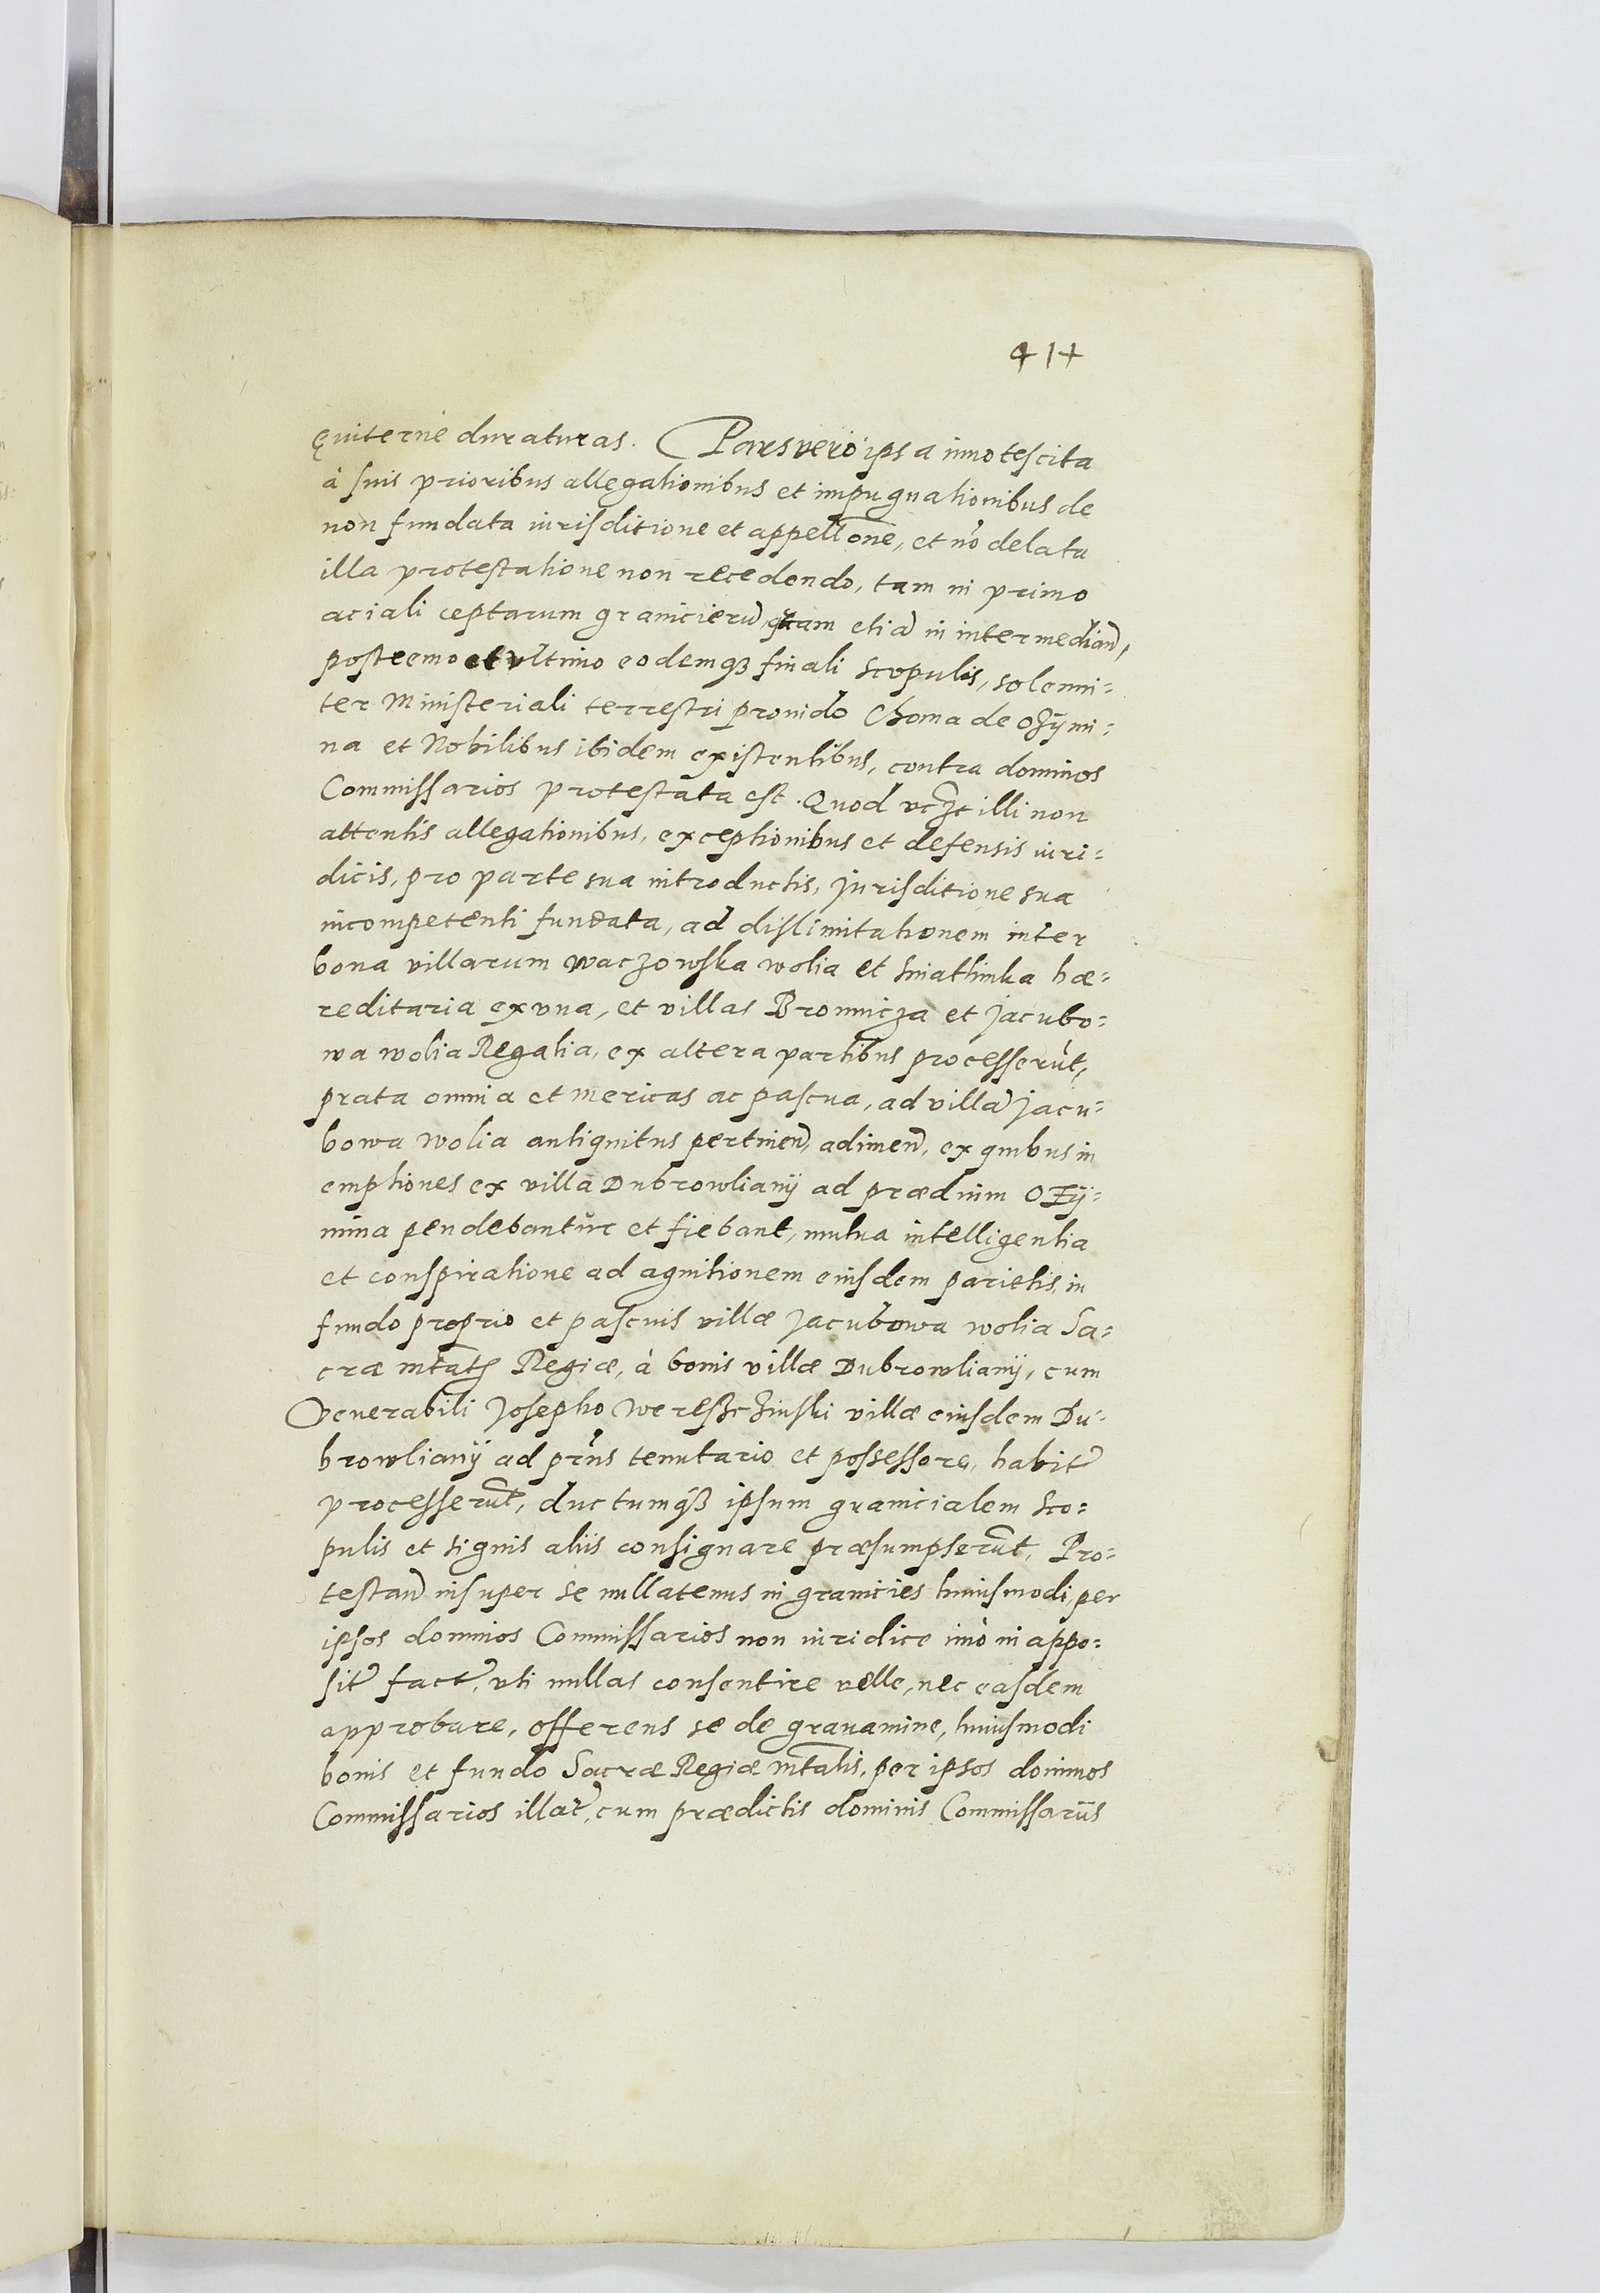 414
ęviterne duraturas. Pars vero ipsa innotescita
à suis prioribus allegationibus et impugnationibus de
non fundata iurisditione et appellone, et nō delata
illa protestatione non recedendo, tam in primo
aciali ceptarum granicierū, quam etiā in intermediand,
postremo et vltimo eodemq3 finali scopulis, solenni=
ter Ministeriali terrestri prouido Choma de Ozymi=
na et Nobilibus ibidem existentibus, contra dominos
Commissarios protestata est. Quod illi non
attentis allegationibus, exceptionibus et defensis iuri=
dicis, pro parte sua introductis, Jurisditione sua
incompetenti fundata, ad dislimitationem inter
bona villarum waczowska wolia et Sniathinka hæ=
reditaria ex vna, et villas Bronnicza et Jacubo=
wa wolia Regalia, ex altera partibus processerūt,
prata omnia et mericas ac pascua, ad villā Jacu=
bowa wolia antiquitus pertinend, adimend, ex quibus in
emptiones ex villa Dubrowliany ad prædium Ozÿ=
mina pendebantur et fiebant, mutua intelligentia
et conspiratione ad agnitionem eiusdem parietis, in
fundo proprio et pascuis villæ Jacubowa wolia Sa=
cræ mtatis Regiæ, à bonis villæ Dubrowlianÿ, cum
Venerabili Josepho Wereszczinski villæ eiusdem Du=
browlianÿ ad prn̄s tenutario et possessore, habit
processerūt, ductumq3 ipsum granicialem sco=
pulis et signis aliis consignare præsumpserūt, Pro=
testand insuper se nullatenus in granicies huiusmodi, per
ipsos dominos Commissarios non iuridice imò in appo=
sit fact, vti nullas consentire velle, nec easdem
approbare, offerens se de grauamine, huiusmodi
bonis et fundo Sacræ Regiæ mtatis, per ipsos dominos
Commissarios illat, cum prædictis dominis Commissariis